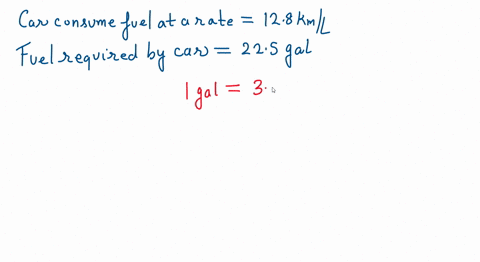 Car consume fuel at a rate = 12.8 Km/L
Fuel required by car = 22.5 gal
1 gal = 3.